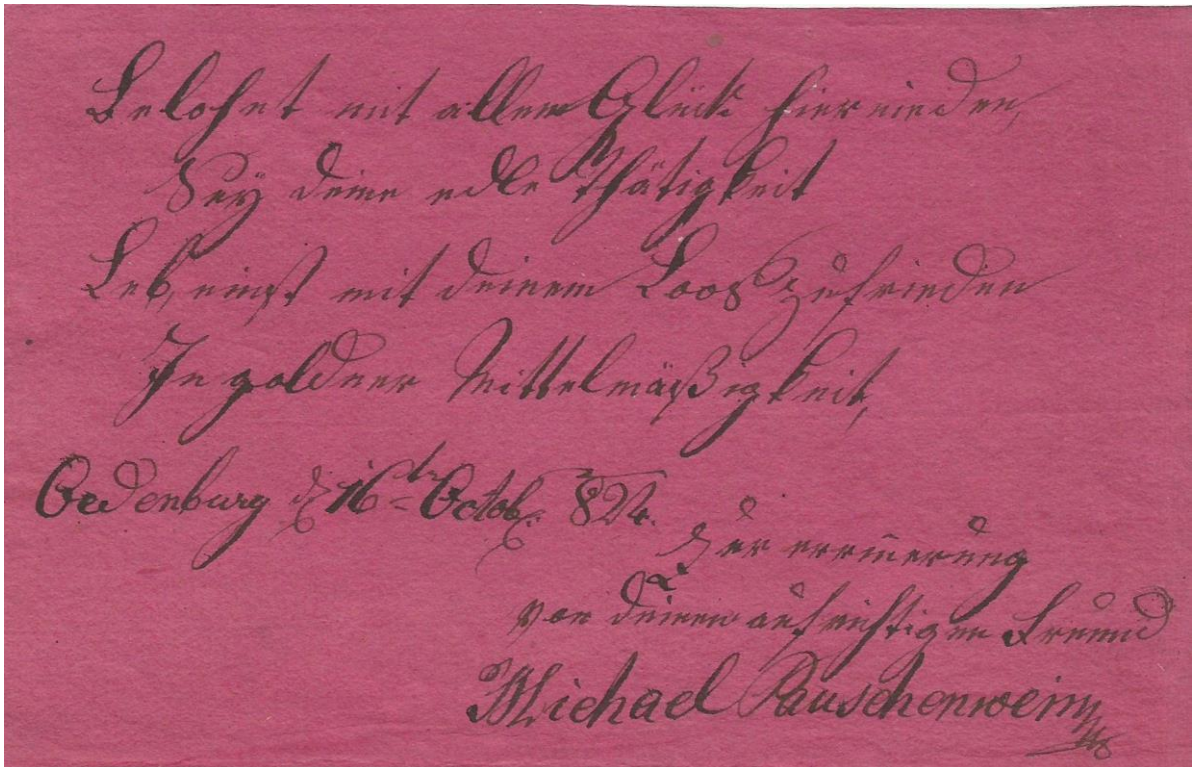 Belohnt mit allem Glück hiernieden,
Sey deine edle Thätigkeit
Leb, einst mit deinem Loos zufrieden
In goldner Mittelmäßigkeit,
Oedenburg d 16tn Octob. 824.
Zur errinerung
von deinen aufrichtigen Freund
Michael Pauschenwein